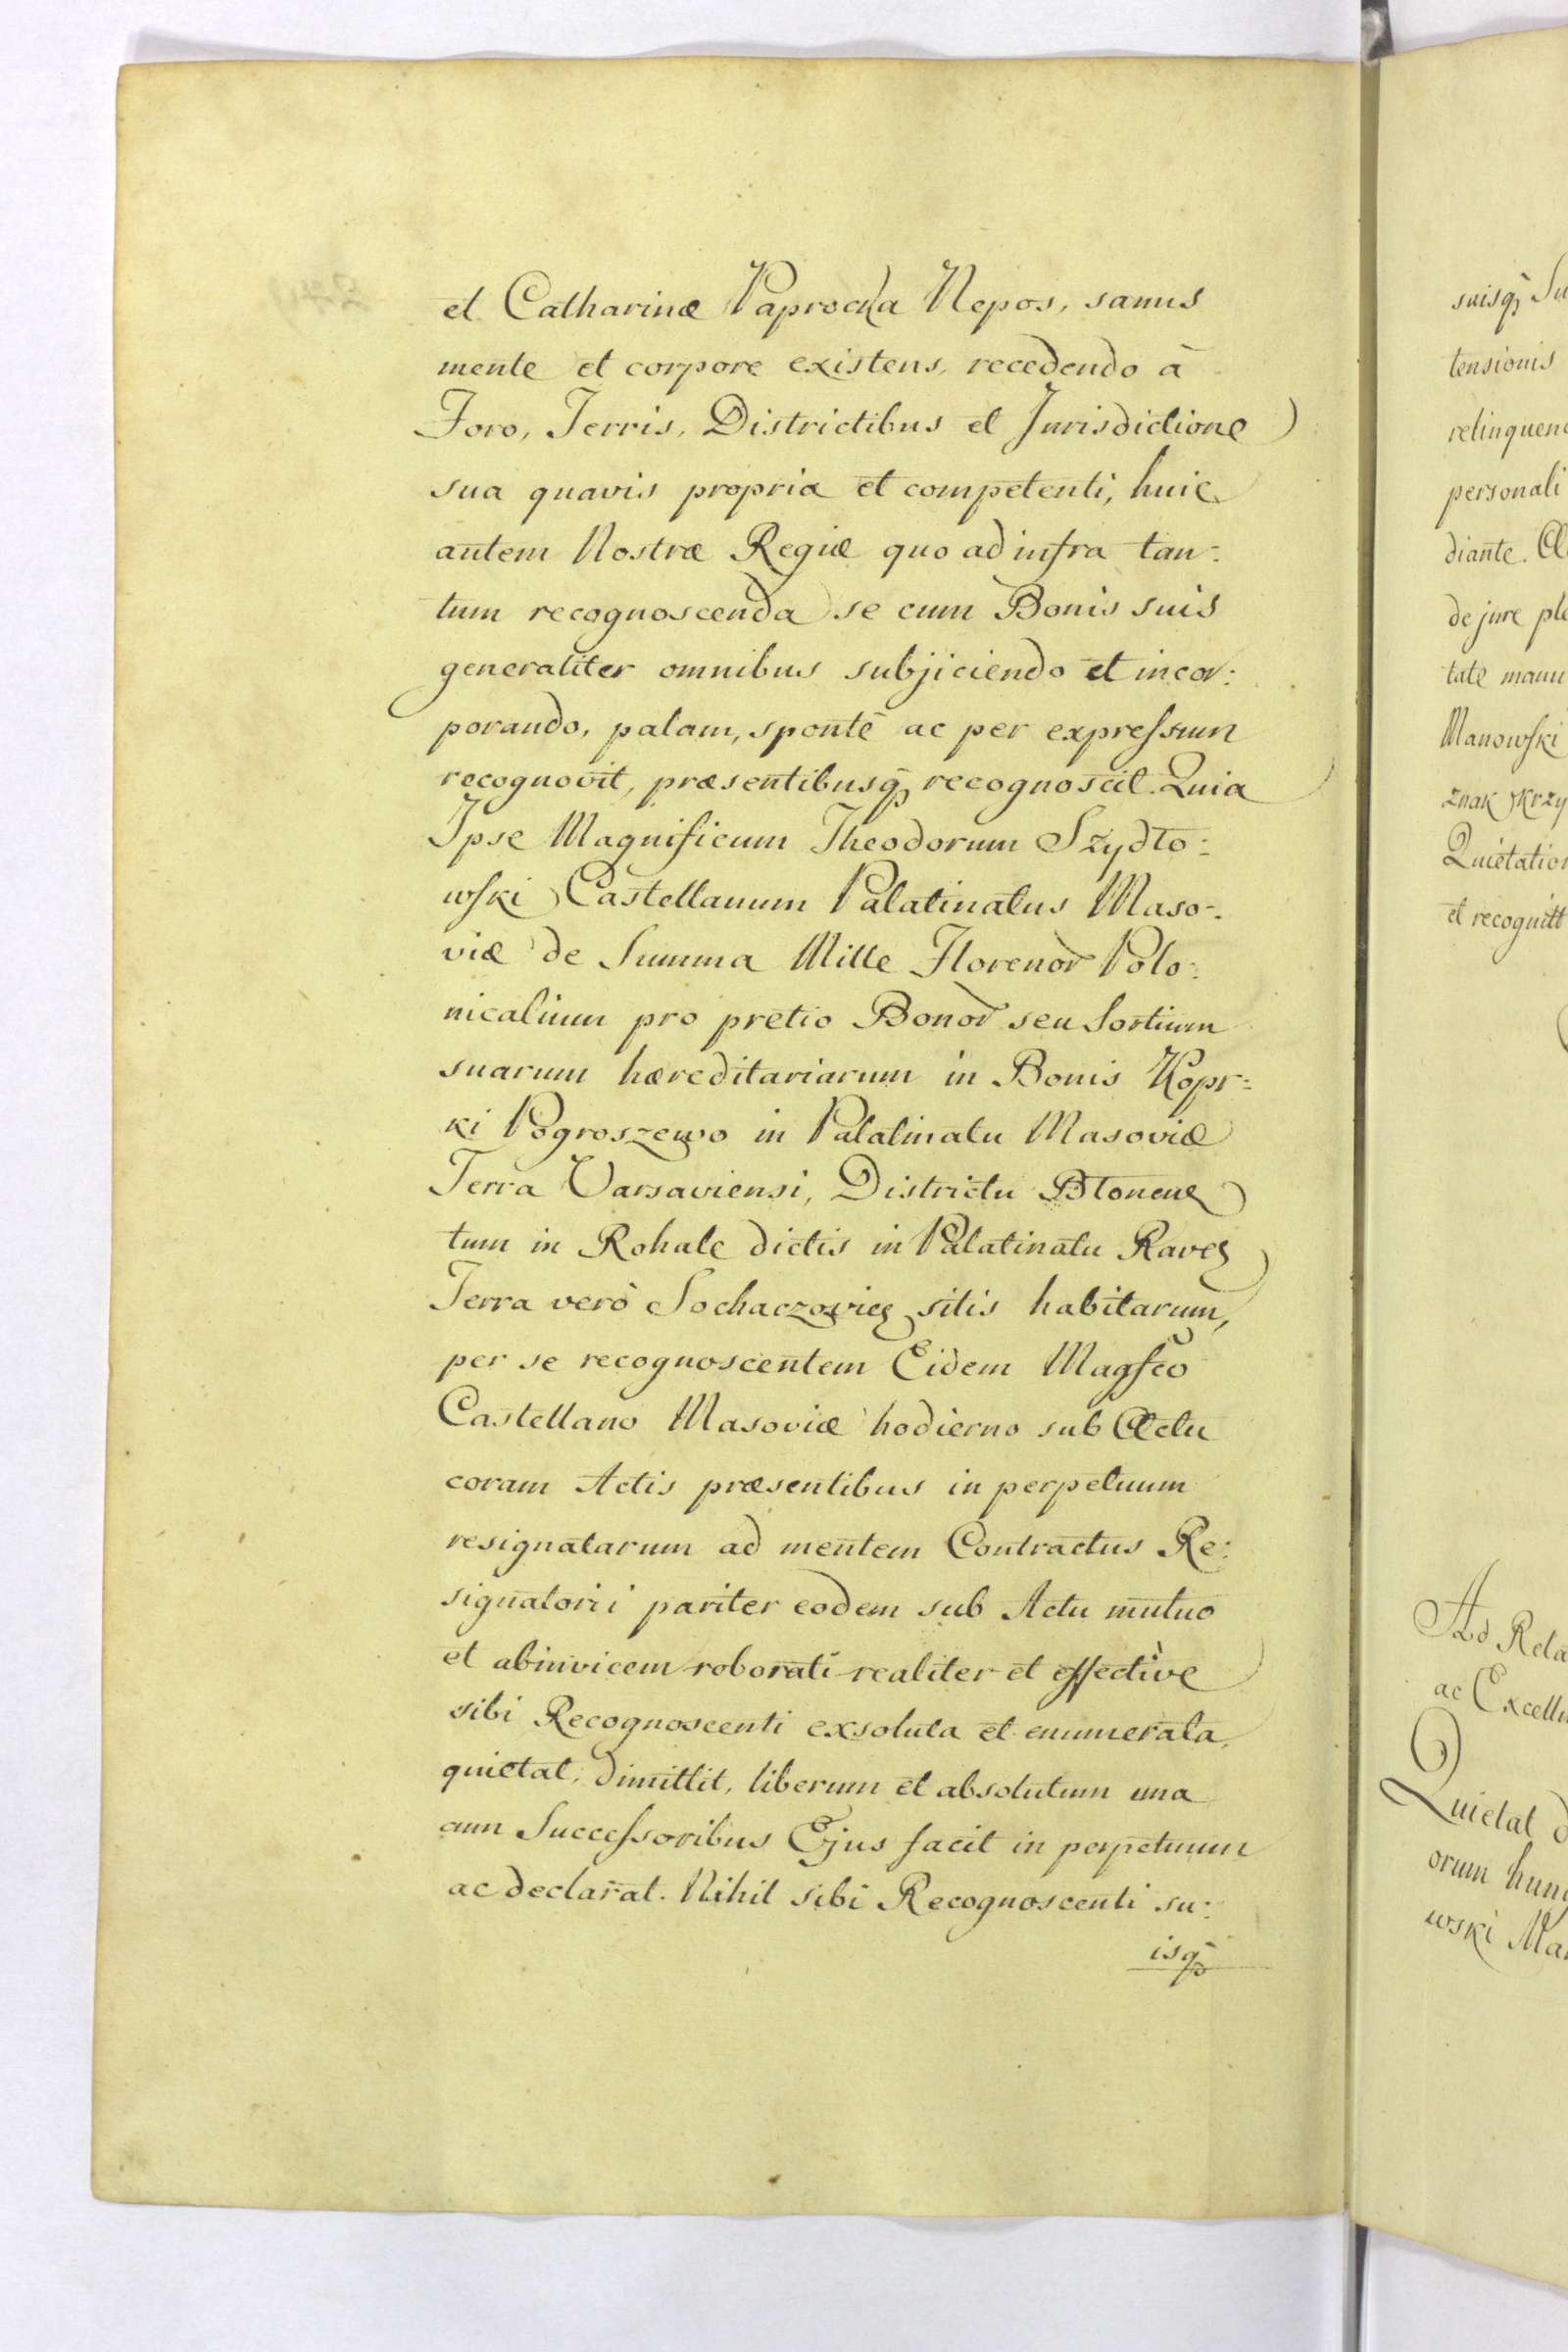 et Catharinæ Paprocka Nepos, sanus
mente et corpore existens, recedendo à
Foro, Terris, Districtibus et Jurisdictione
sua quavis propria et competenti, huic
autem Nostræ Regiæ quo ad infra tan-:
tum recognoscenda se cum Bonis suis
generaliter omnibus subjiciendo et incor:
porando, palam, spontè ac per expreſsum
recognovit, præsentibusq̃ recognoscit. Quia
Ipse Magnificum Theodorum Szydło-:
wſki Castellanum Palatinatus Maso-:
viæ de Summa Mille Florenor̃ Polo-:
nicalium pro pretio Bonor̃ seu Sortium
suarum hæreditariarum in Bonis Kopr-:
ki Pogroszewo in Palatinatu Masoviæ
Terra Varsaviensi, Districtu Błonens
tum in Rokale dictis in Palatinatu Raves
Terra verò Sochaczovies sitis habitarum,
per se recognoscentem Eidem Magfco
Castellano Masoviæ hodierno sub Actu
coram Actis præsentibus in perpetuum
resignatarum ad mentem Contractus Re:
signatorii pariter eodem sub Actu mutuo
et abinvicem roborati realiter et effectivè
sibi Recognoscenti exsoluta et enumerata,
quietat, dimittit, liberum et absolutum una
cum Succeſsoribus Ejus facit in perpetuum
ac declarat. Nihil sibi Recognoscenti su-:
isq̃
suisq̃ Su
tensionis
relinquen
personali
diante.
de jure ple
tate manu
Manowſki
znak Krzy
Quietation
et recognitt
Ad Rela
ac Excell
Quietat d
orum hun
wski Ma